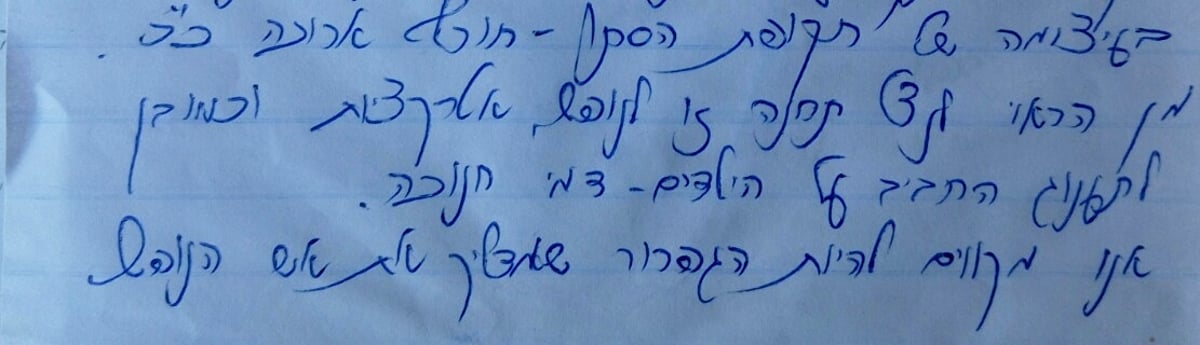 בעיצומה של תקופת הסתו - חופש ארוכה כ"כ.
מן הראוי לנצל תחנה זו לנופש, אטרקציות וכמובן
לתענוג החביב על הילדים - דמי חנוכה.
אנו מקווים להיות הגפרור שמדליק את אש הנופש